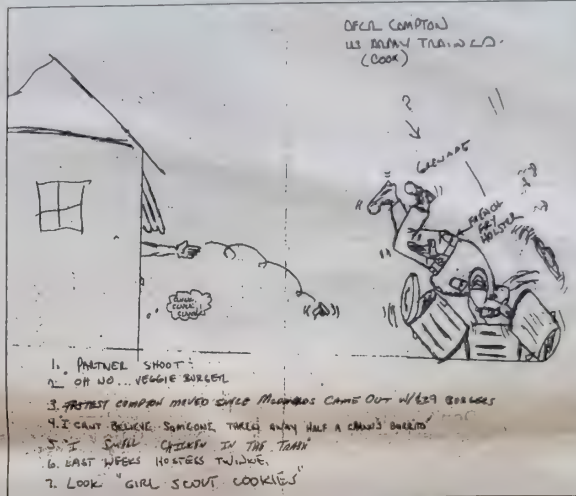 OFCR COMPTON
US ARMY TRAINED.
(COOK)
?
GRENADE
FRENCH
FRY
HOLSTER
CLUNK,
CLUNK,
1. PARTNER SHOOT!
2. OH NO... VEGGIE BURGER
3. FASTEST COMPTON MOVED SINCE McDONALDS CAME OUT W/ $.29 BURGERS
4. I CANT BELIEVE SOMEONE THREW AWAY HALF A BURRITO"
5. I SMELL CHICKEN IN THE TRASH"
6. LAST WEEKS HOSTESS TWINKIE.
7. LOOK "GIRL SCOUT COOKIES"